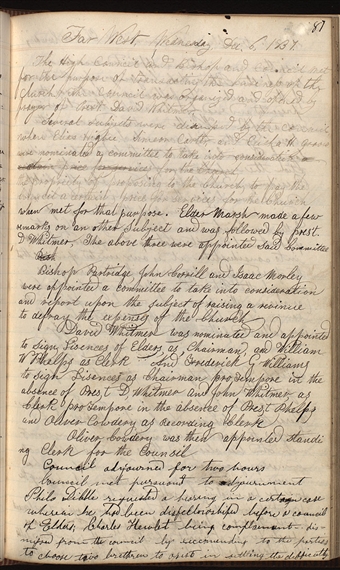 87
Far West Wednesday Dec 6, 1837
The High Council and Bishop and council met
for the purpose of
Church when council was organized and opened by
prayer by Prest David Whitmer
Several subjects were discussed by the council
when Elias Higbee Simeon Carter and Elisha H. Groves
were nominated a committee to take into consideration
the propriety of proposing to the Church to pay the
for services for the Church
when met for that purpose. Elder Marsh made a few
remarks on an other subject and was followed by Prest.
D Whitmer, The above three were appointed said Committee
Bishop Partridge John Corrill and Isaac Morley
were appointed a committee to take into consideration
and report upon the subject of raising a revinue
to defray the expenses of the Church
David Whitmer was nominated and appointed
to sign Lisences of Elders as Chairman, and William
W Phelps as Clerk And Frederick G Williams
to sign Lisences as Chairman protempore in the
absence of Prest D Whitmer and John Whitmer, as
Clerk protempore in the absence of Prest Phelps
and Oliver Cowdery as Recording Clerk
Oliver Cowdery was then appointed Standi
ng Clerk for the Counsil
Council adjourned for two hours
Council met pursuant to adjournment
Philo Dibble requested a hearing in a certain case
wherein he had been disfellowshiped before a council
of Elders, Charles Hewlet being complainant dis-
missed from the council by reccomending to the parties
to choose two brethren to assist in settling the difficulty